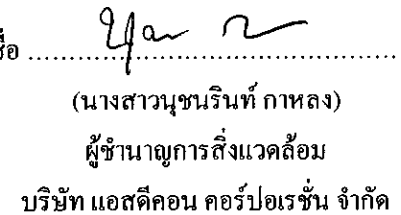 ชื่อ ........................................
(นางสาวนุชนรินท์ กาหลง)
ผู้ชำนาญการสิ่งแวดล้อม
บริษัท แอสดีคอน คอร์ปอเรชั่น จำกัด